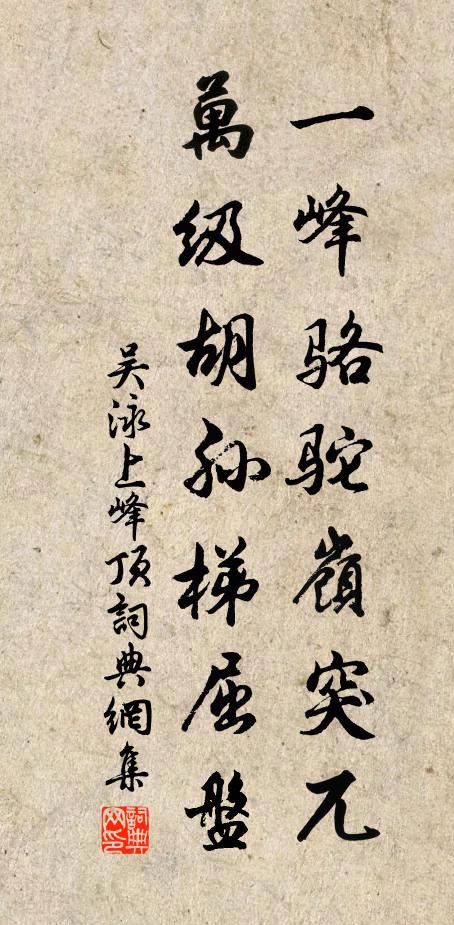 一峰骆驼嶺突兀
萬级胡孙梯屈盤
吴泳上峰顶詞典網集
詞典网印